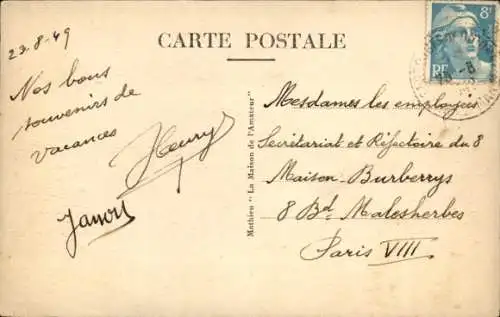 CARTE POSTALE
23-8-49
Nos bons
souvenirs de
vacances
Henry
Mathieu "La Maison de l'Amateur"
8F
RF
Mesdames les employées
Secrétariat et Réfectoire du 8
Maison-Burberrys
8 Bd Malesherbes
Paris VIII